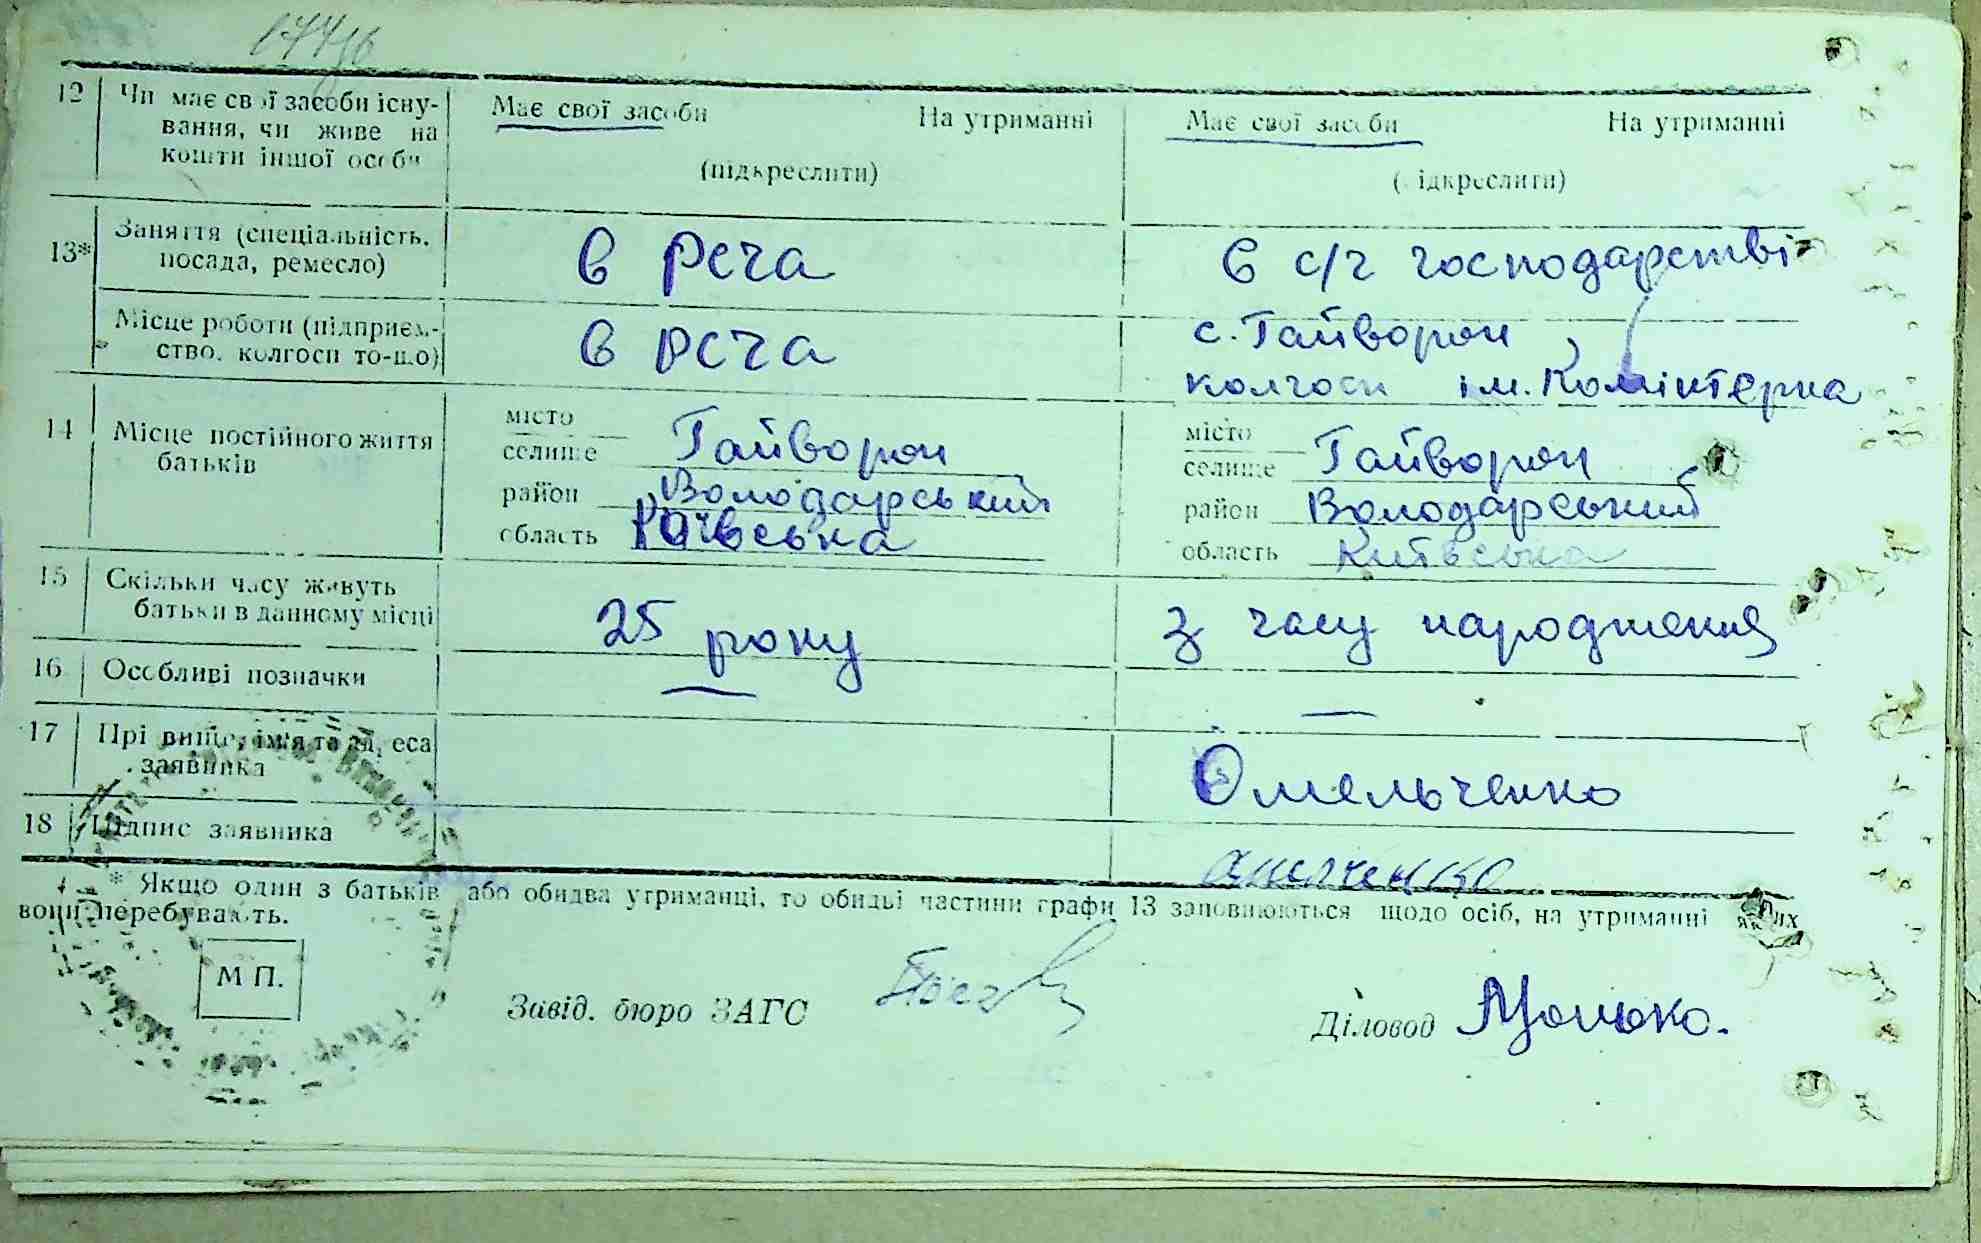 12 Чи має свої засоби існу-
вання, чи живе на
кошти іншої особи
Має свої засоби На утриманні
(підкреслити)
Має свої засоби На утриманні
(підкреслити)
13* Заняття (спеціальність,
посада, ремесло)
в рсча
в с/г господарстві
Місце роботи (підприєм-
ство, колгосп то-що)
в рсча
с. Гайворон,
колгосп ім. Комінтерна
14 Місце постійного життя
батьків
місто
селище Гайворон
район Володарський
область Київська
місто
селище Гайворон
район Володарський
область Київська
15 Скільки часу живуть
батьки в данному місці
25 року
з часу народження
16 Особливі позначки
— —
17 Прізвище, ім'я та адреса
заявника
Омельченко
18 Підпис заявника
* Якщо один з батьків або обидва утриманці, то обидві частини графи 13 заповнюються щодо осіб, на утриманні яких
вони перебувають.
М П.
Завід. бюро ЗАГС
Діловод